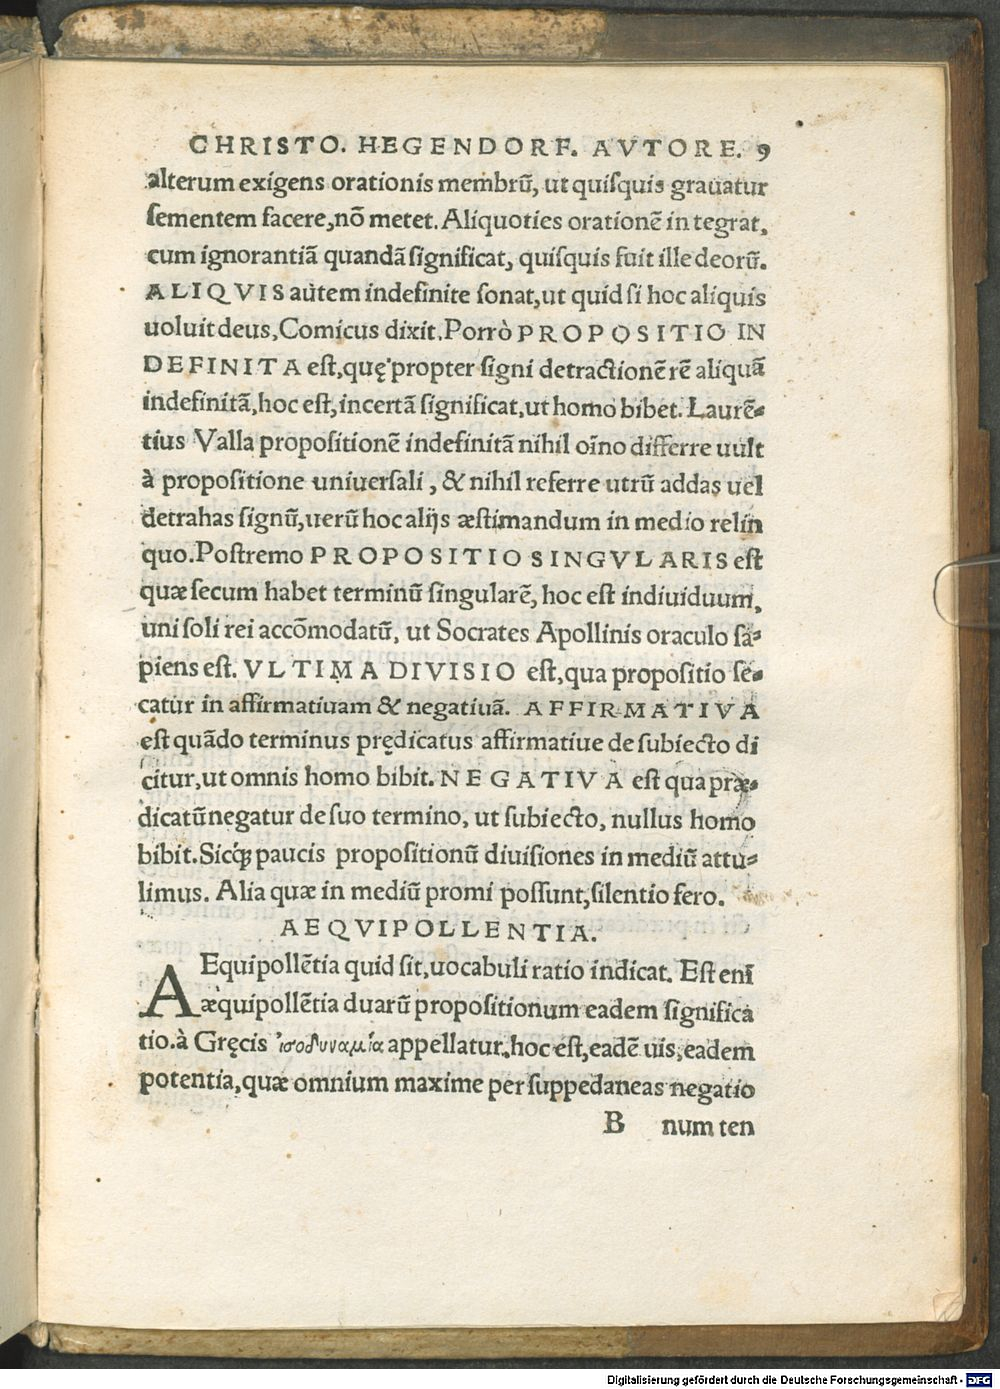 CHRISTO. HEGENDORF. AVTORE. 9
alterum exigens orationis membrũ, ut quiſquis grauatur
ſementem facere, nõ metet. Aliquoties orationẽ in tegrat,
cum ignorantiã quandã ſignificat, quiſquis fuit ille deorũ.
ALIQVIS autem indefinite ſonat, ut quid ſi hoc aliquis
uoluit deus, Comicus dixit. Porrò PROPOSITIO IN
DEFINITA eſt, quę propter ſigni detractionẽ rẽ aliquã
indefinitã, hoc eſt, incertã ſignificat, ut homo bibet. Laurẽ⸗
tius Valla propoſitionẽ indefinitã nihil oĩno differre uult
à propoſitione uniuerſali, & nihil referre utrũ addas uel
detrahas ſignũ, uerũ hoc alijs æſtimandum in medio relin
quo. Poſtremo PROPOSITIO SINGVLARIS eſt
quæ ſecum habet terminũ ſingularẽ, hoc eſt indiuiduum,
uni ſoli rei accõmodatũ, ut Socrates Apollinis oraculo ſa⸗
piens eſt. VLTIMA DIVISIO eſt, qua propoſitio ſe⸗
catur in affirmatiuam & negatiuã. AFFIRMATIVA
eſt quãdo terminus prędicatus affirmatiue de ſubiecto di
citur, ut omnis homo bibit. NEGATIVA eſt qua præ⸗
dicatũ negatur de ſuo termino, ut ſubiecto, nullus homo
bibit. Sicq́ꝫ paucis propoſitionũ diuiſiones in mediũ attu⸗
limus. Alia quæ in mediũ promi poſſunt, ſilentio fero.
AEQVIPOLLENTIA.
AEquipollẽtia quid ſit, uocabuli ratio indicat. Eſt enĩ
æquipollẽtia duarũ propoſitionum eadem ſignifica
tio. à Gręcis ἰσοδυναμία appellatur. hoc eſt, eadẽ uis, eadem
potentia, quæ omnium maxime per ſuppedaneas negatio
B num ten
Digitalisierung gefördert durch die Deutsche Forschungsgemeinschaft - DFG